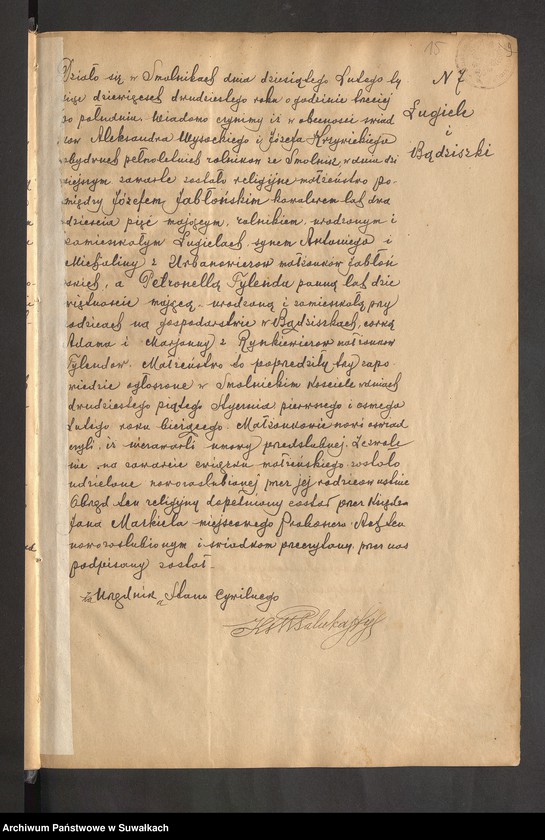 15
N 7
Ługiele
i
Bądziszki
Działo się w Smolnikach dnia dziesiątego Lutego ty
siąc dziewięćset dwudziestego roku o godzinie trzeciej
po południu. Wiadomo czynimy iż w obecności świad
ków Aleksandra Wysockiego i Józefa Krzywickiego
obydwuch pełnoletnich rolników ze Smolnik, w dniu dzi
siejszym zawarte zostało religijne małżeństwo po-
między Józefem Jabłońskim kawalerem lat dwa
dzieścia pięć mającym, rolnikiem, urodzonym i
zamieszkałym Ługielach, synem Antoniego i
Michaliny z Urbanowiczów małżonków Jabłoń
skich, a Petronellą Tylendą panną lat dzie
więtnaście mającą urodzoną i zamieszkałą przy
rodzicach na gospodarstwie w Bądziszkach, córką
Adama i Marjanny z Rynkiewiczów małżonków
Tylendów. Małżeństwo to poprzedziły trzy zapo-
wiedzie ogłoszone w Smolnickim Kościele w dniach
dwudziestego piątego Stycznia pierwszego i ósmego
Lutego roku bieżącego. Małżonkowie nowi oświad
czyli, iż niezawarli umowy przedślubnej. Zezwole
nie na zawarcie związku małżeńskiego zostało
udzielone nowozaślubionej przez jej rodziców ustnie
Obrzęd ten religijny dopełniony został przez Księdza
Jana Markiela miejscowego Proboszcza. Akt ten
nowozaślubionym i świadkom przeczytany, przez nas
podpisany został.
za Urzędnik Stanu Cywilnego
Archiwum Państwowe w Suwałkach